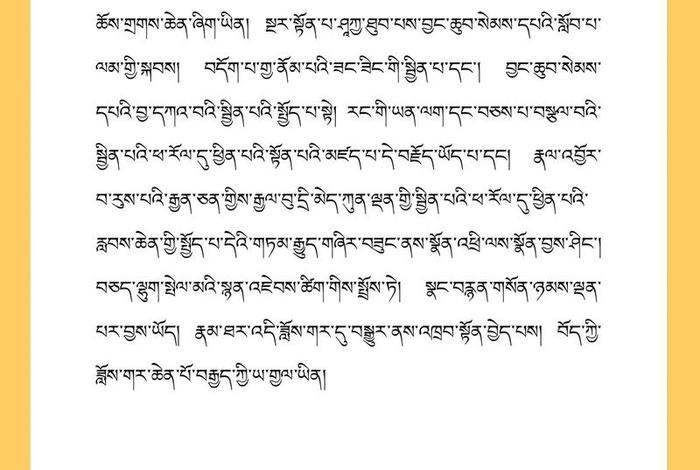 ཆོས་གྲགས་ཆེན་ཞིག་ཡིན། སྔར་སྟོན་པ་ཤཱཀྱ་ཐུབ་པས་བྱང་ཆུབ་སེམས་དཔའི་སློབ་པ་
ལམ་གྱི་སྐབས། བདོག་པ་གྱ་ནོམ་པའི་ཟང་ཟིང་གི་སྦྱིན་པ་དང་། བྱང་ཆུབ་སེམས་
དཔའི་བྱ་དཀའ་བའི་སྦྱིན་པའི་སྤྱོད་པ་སྟེ། རང་གི་ཡན་ལག་དང་བཅས་པ་བསྩལ་བའི་
སྦྱིན་པའི་ཕ་རོལ་དུ་ཕྱིན་པའི་སྟོན་པའི་མཛད་པ་དེ་བརྗོད་ཡོད་པ་དང། རྣལ་འབྱོར་
བ་རུས་པའི་རྒྱན་ཅན་གྱིས་རྒྱལ་བུ་དྲི་མེད་ཀུན་ལྡན་གྱི་སྦྱིན་པའི་ཕ་རོལ་དུ་ཕྱིན་པའི་
རླབས་ཆེན་གྱི་སྤྱོད་པ་དེའི་གཏམ་རྒྱུད་གཞིར་བཟུང་ནས་སྣོན་འཕྲི་ལས་སྣོན་བྱས་ཤིང་།
བཅད་ལྷུག་སྤེལ་མའི་སྙན་འཇེབས་ཚིག་གིས་སྤྲོས་ཏེ། སྣང་བརྙན་གསོན་ཉམས་ལྡན་
པར་བྱས་ཡོད། རྣམ་ཐར་འདི་ཟློས་གར་དུ་བསྒྱུར་ནས་འཁྲབ་སྟོན་བྱེད་པས། བོད་ཀྱི་
ཟློས་གར་ཆེན་པོ་བརྒྱད་ཀྱི་ཡ་གྱལ་ཡིན།